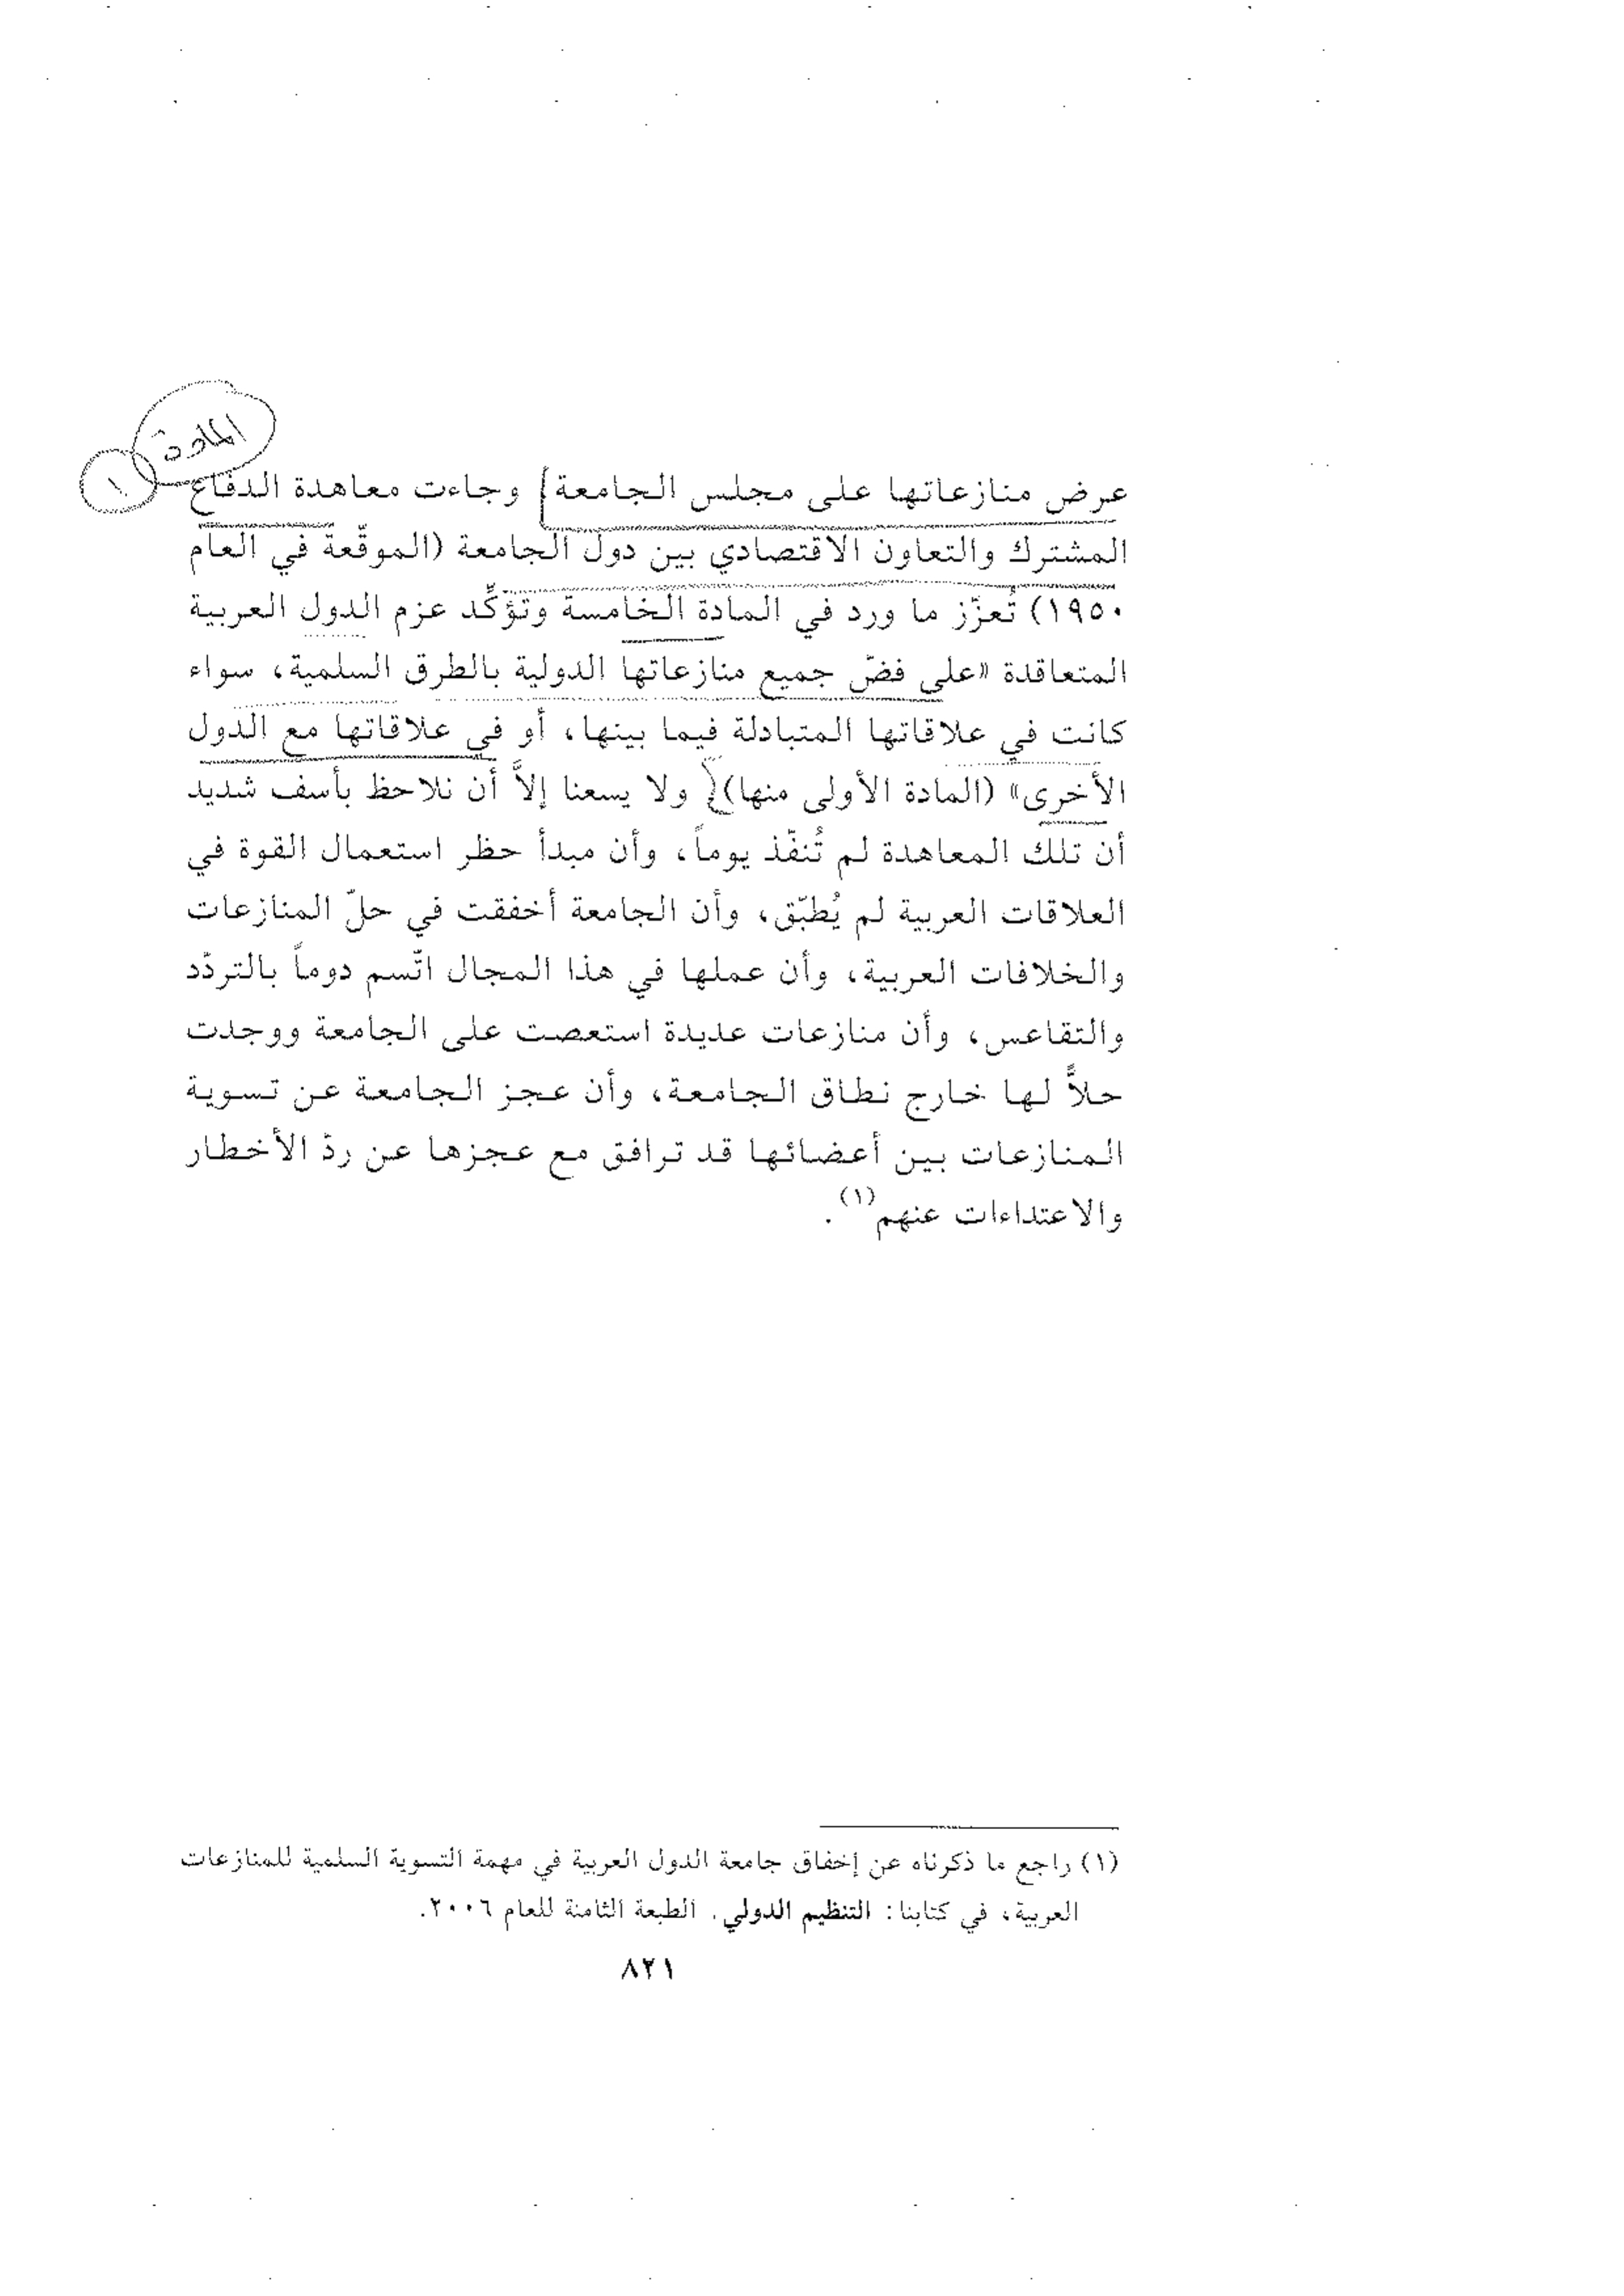 المادة
١
عرض منازعاتها على مجلس الجامعة] وجاءت معاهدة الدفاع
المشترك والتعاون الاقتصادي بين دول الجامعة (الموقّعة في العام
١٩٥٠) تُعزّز ما ورد في المادة الخامسة وتؤكِّد عزم الدول العربية
المتعاقدة «على فضّ جميع منازعاتها الدولية بالطرق السلمية، سواء
كانت في علاقاتها المتبادلة فيما بينها، أو في علاقاتها مع الدول
الأخرى» (المادة الأولى منها)( ولا يسعنا إلاَّ أن نلاحظ بأسف شديد
أن تلك المعاهدة لم تُنفّذ يوماً، وأن مبدأ حظر استعمال القوة في
العلاقات العربية لم يُطبّق، وأن الجامعة أخفقت في حلّ المنازعات
والخلافات العربية، وأن عملها في هذا المجال اتّسم دوماً بالتردّد
والتقاعس، وأن منازعات عديدة استعصت على الجامعة ووجدت
حلاًّ لها خارج نطاق الجامعة، وأن عجز الجامعة عن تسوية
المنازعات بين أعضائها قد ترافق مع عجزها عن ردّ الأخطار
والاعتداءات عنهم(١).
(١) راجع ما ذكرناه عن إخفاق جامعة الدول العربية في مهمة التسوية السلمية للمنازعات
العربية، في كتابنا: التنظيم الدولي. الطبعة الثامنة للعام ٢٠٠٦.
٨٢١